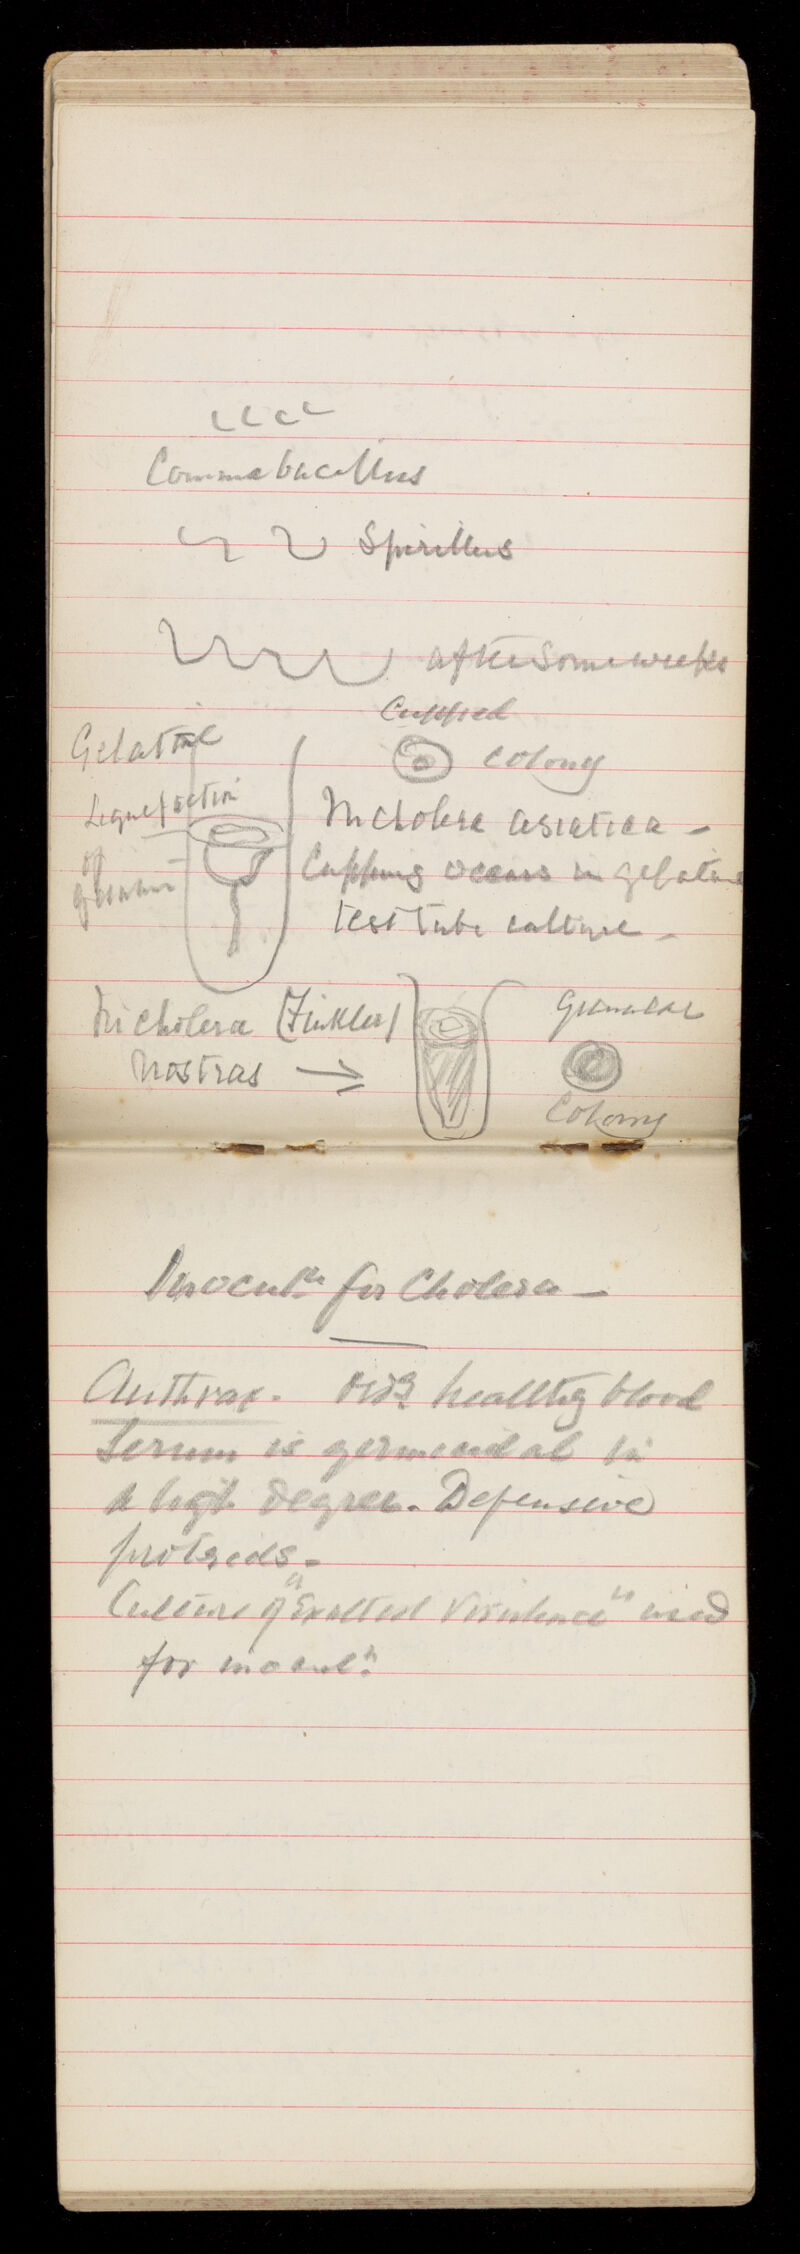 Commabacillus
Spirillus
after some weeks
Gelatine
Liquefaction
of
gelatine
Cupped
colony
In cholera asiatica -
Cupping occurs in gelatine
test tube culture -
In cholera (Finkler)
Nostras
Granular
Colony
Inoculn for Cholera -
Anthrax. healthy blood
Serum is germicidal in
a high degree. Defensive
proteids -
Culture of "Exalted Virulence" used
for inoculn.